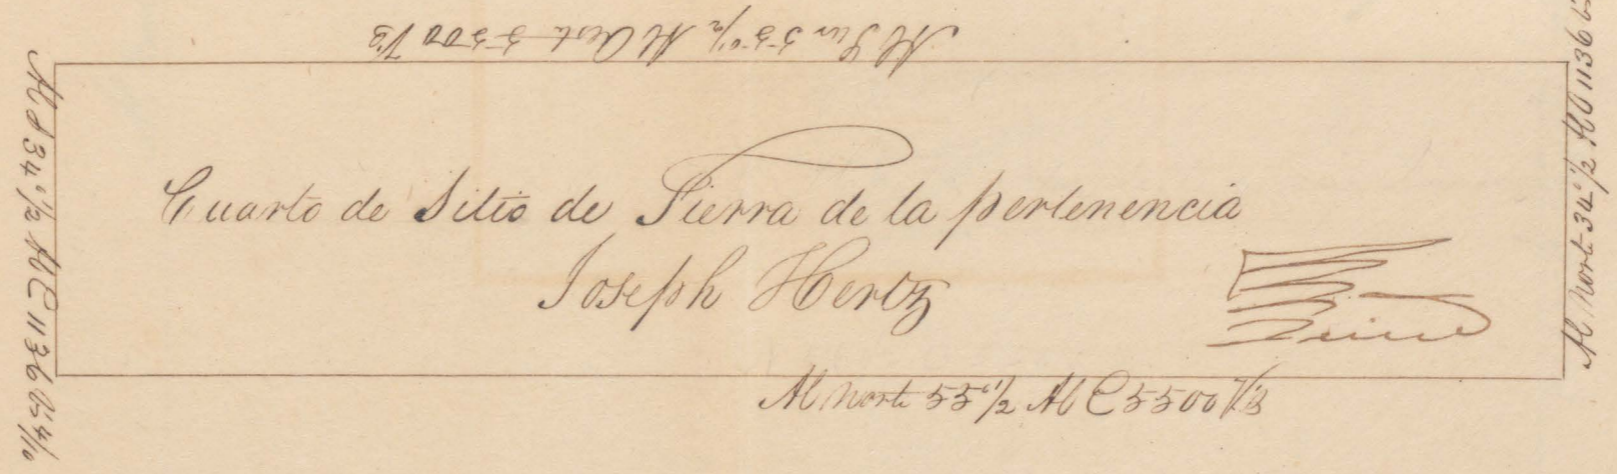 Al Sur 55°1/2 Al Oeste 5500 Vs
Al S 34°1/2 Al E 1136 Vs 4/10
Cuarto de Sitio de Tierra de la pertenencia
Joseph Hertz
Al Norte 34°1/2 Al O 1136
Al Norte 55°1/2 Al E 5500 Vs